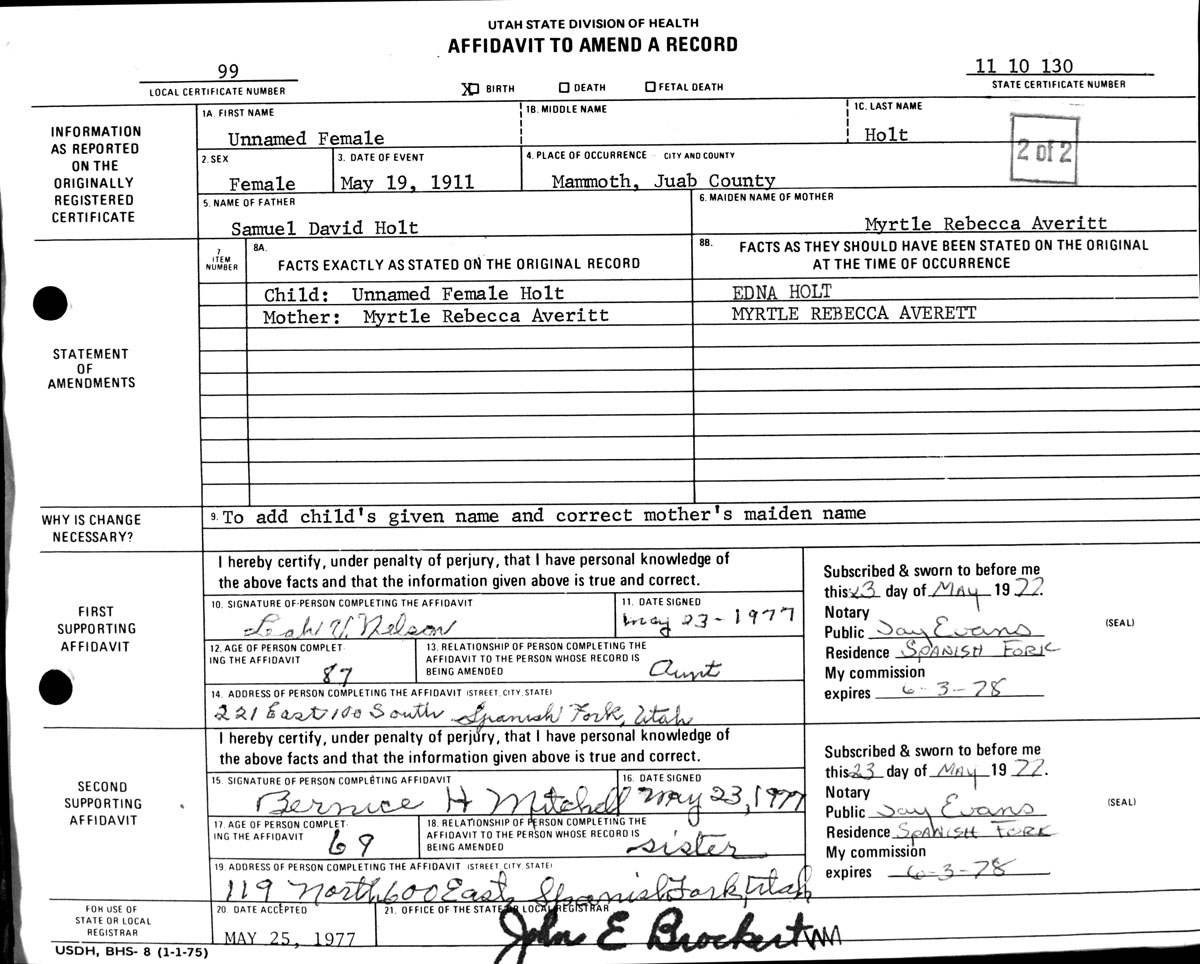 UTAH STATE DIVISION OF HEALTH
AFFIDAVIT TO AMEND A RECORD
99
LOCAL CERTIFICATE NUMBER
X BIRTH DEATH FETAL DEATH
11 10 130
STATE CERTIFICATE NUMBER
INFORMATION
AS REPORTED
ON THE
ORIGINALLY
REGISTERED
CERTIFICATE
1A. FIRST NAME
Unnamed Female
1B. MIDDLE NAME
1C. LAST NAME
Holt
2 of 2
2. SEX
Female
3. DATE OF EVENT
May 19, 1911
4. PLACE OF OCCURRENCE - CITY AND COUNTY
Mammoth, Juab County
5. NAME OF FATHER
Samuel David Holt
6. MAIDEN NAME OF MOTHER
Myrtle Rebecca Averitt
STATEMENT
OF
AMENDMENTS
7
ITEM
NUMBER
8A.
FACTS EXACTLY AS STATED ON THE ORIGINAL RECORD
8B. FACTS AS THEY SHOULD HAVE BEEN STATED ON THE ORIGINAL
AT THE TIME OF OCCURRENCE
Child: Unnamed Female Holt
EDNA HOLT
Mother: Myrtle Rebecca Averitt
MYRTLE REBECCA AVERETT
WHY IS CHANGE
NECESSARY?
9. To add child's given name and correct mother's maiden name
FIRST
SUPPORTING
AFFIDAVIT
I hereby certify, under penalty of perjury, that I have personal knowledge of
the above facts and that the information given above is true and correct.
10. SIGNATURE OF PERSON COMPLETING THE AFFIDAVIT
Leah V. Nelson
11. DATE SIGNED
May 23-1977
12. AGE OF PERSON COMPLET-
ING THE AFFIDAVIT
87
13. RELATIONSHIP OF PERSON COMPLETING THE
AFFIDAVIT TO THE PERSON WHOSE RECORD IS
BEING AMENDED
Aunt
14. ADDRESS OF PERSON COMPLETING THE AFFIDAVIT (STREET, CITY, STATE)
221 East 100 South Spanish Fork, Utah
Subscribed & sworn to before me
this 23 day of MAY 1977.
Notary
Public Jay Evans
Residence SPANISH FORK
My commission
expires 6-3-78
(SEAL)
SECOND
SUPPORTING
AFFIDAVIT
I hereby certify, under penalty of perjury, that I have personal knowledge of
the above facts and that the information given above is true and correct.
15. SIGNATURE OF PERSON COMPLETING AFFIDAVIT
Bernice H Mitchell
16. DATE SIGNED
May 23, 1977
17. AGE OF PERSON COMPLET-
ING THE AFFIDAVIT
69
18. RELATIONSHIP OF PERSON COMPLETING THE
AFFIDAVIT TO THE PERSON WHOSE RECORD IS
BEING AMENDED
sister
19. ADDRESS OF PERSON COMPLETING THE AFFIDAVIT (STREET, CITY, STATE)
119 North 600 East, Spanish Fork, Utah
Subscribed & sworn to before me
this 23 day of MAY 1977.
Notary
Public Jay Evans
Residence SPANISH FORK
My commission
expires 6-3-78
(SEAL)
FOR USE OF
STATE OR LOCAL
REGISTRAR
20. DATE ACCEPTED
MAY 25, 1977
21. OFFICE OF THE STATE OR LOCAL REGISTRAR
John E Brockert
USDH, BHS- 8 (1-1-75)